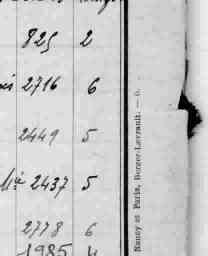 825 2
2716 6
2449 5
2437 5
2778 6
1985 4
Nancy et Paris, Berger-Levrault. — 6.